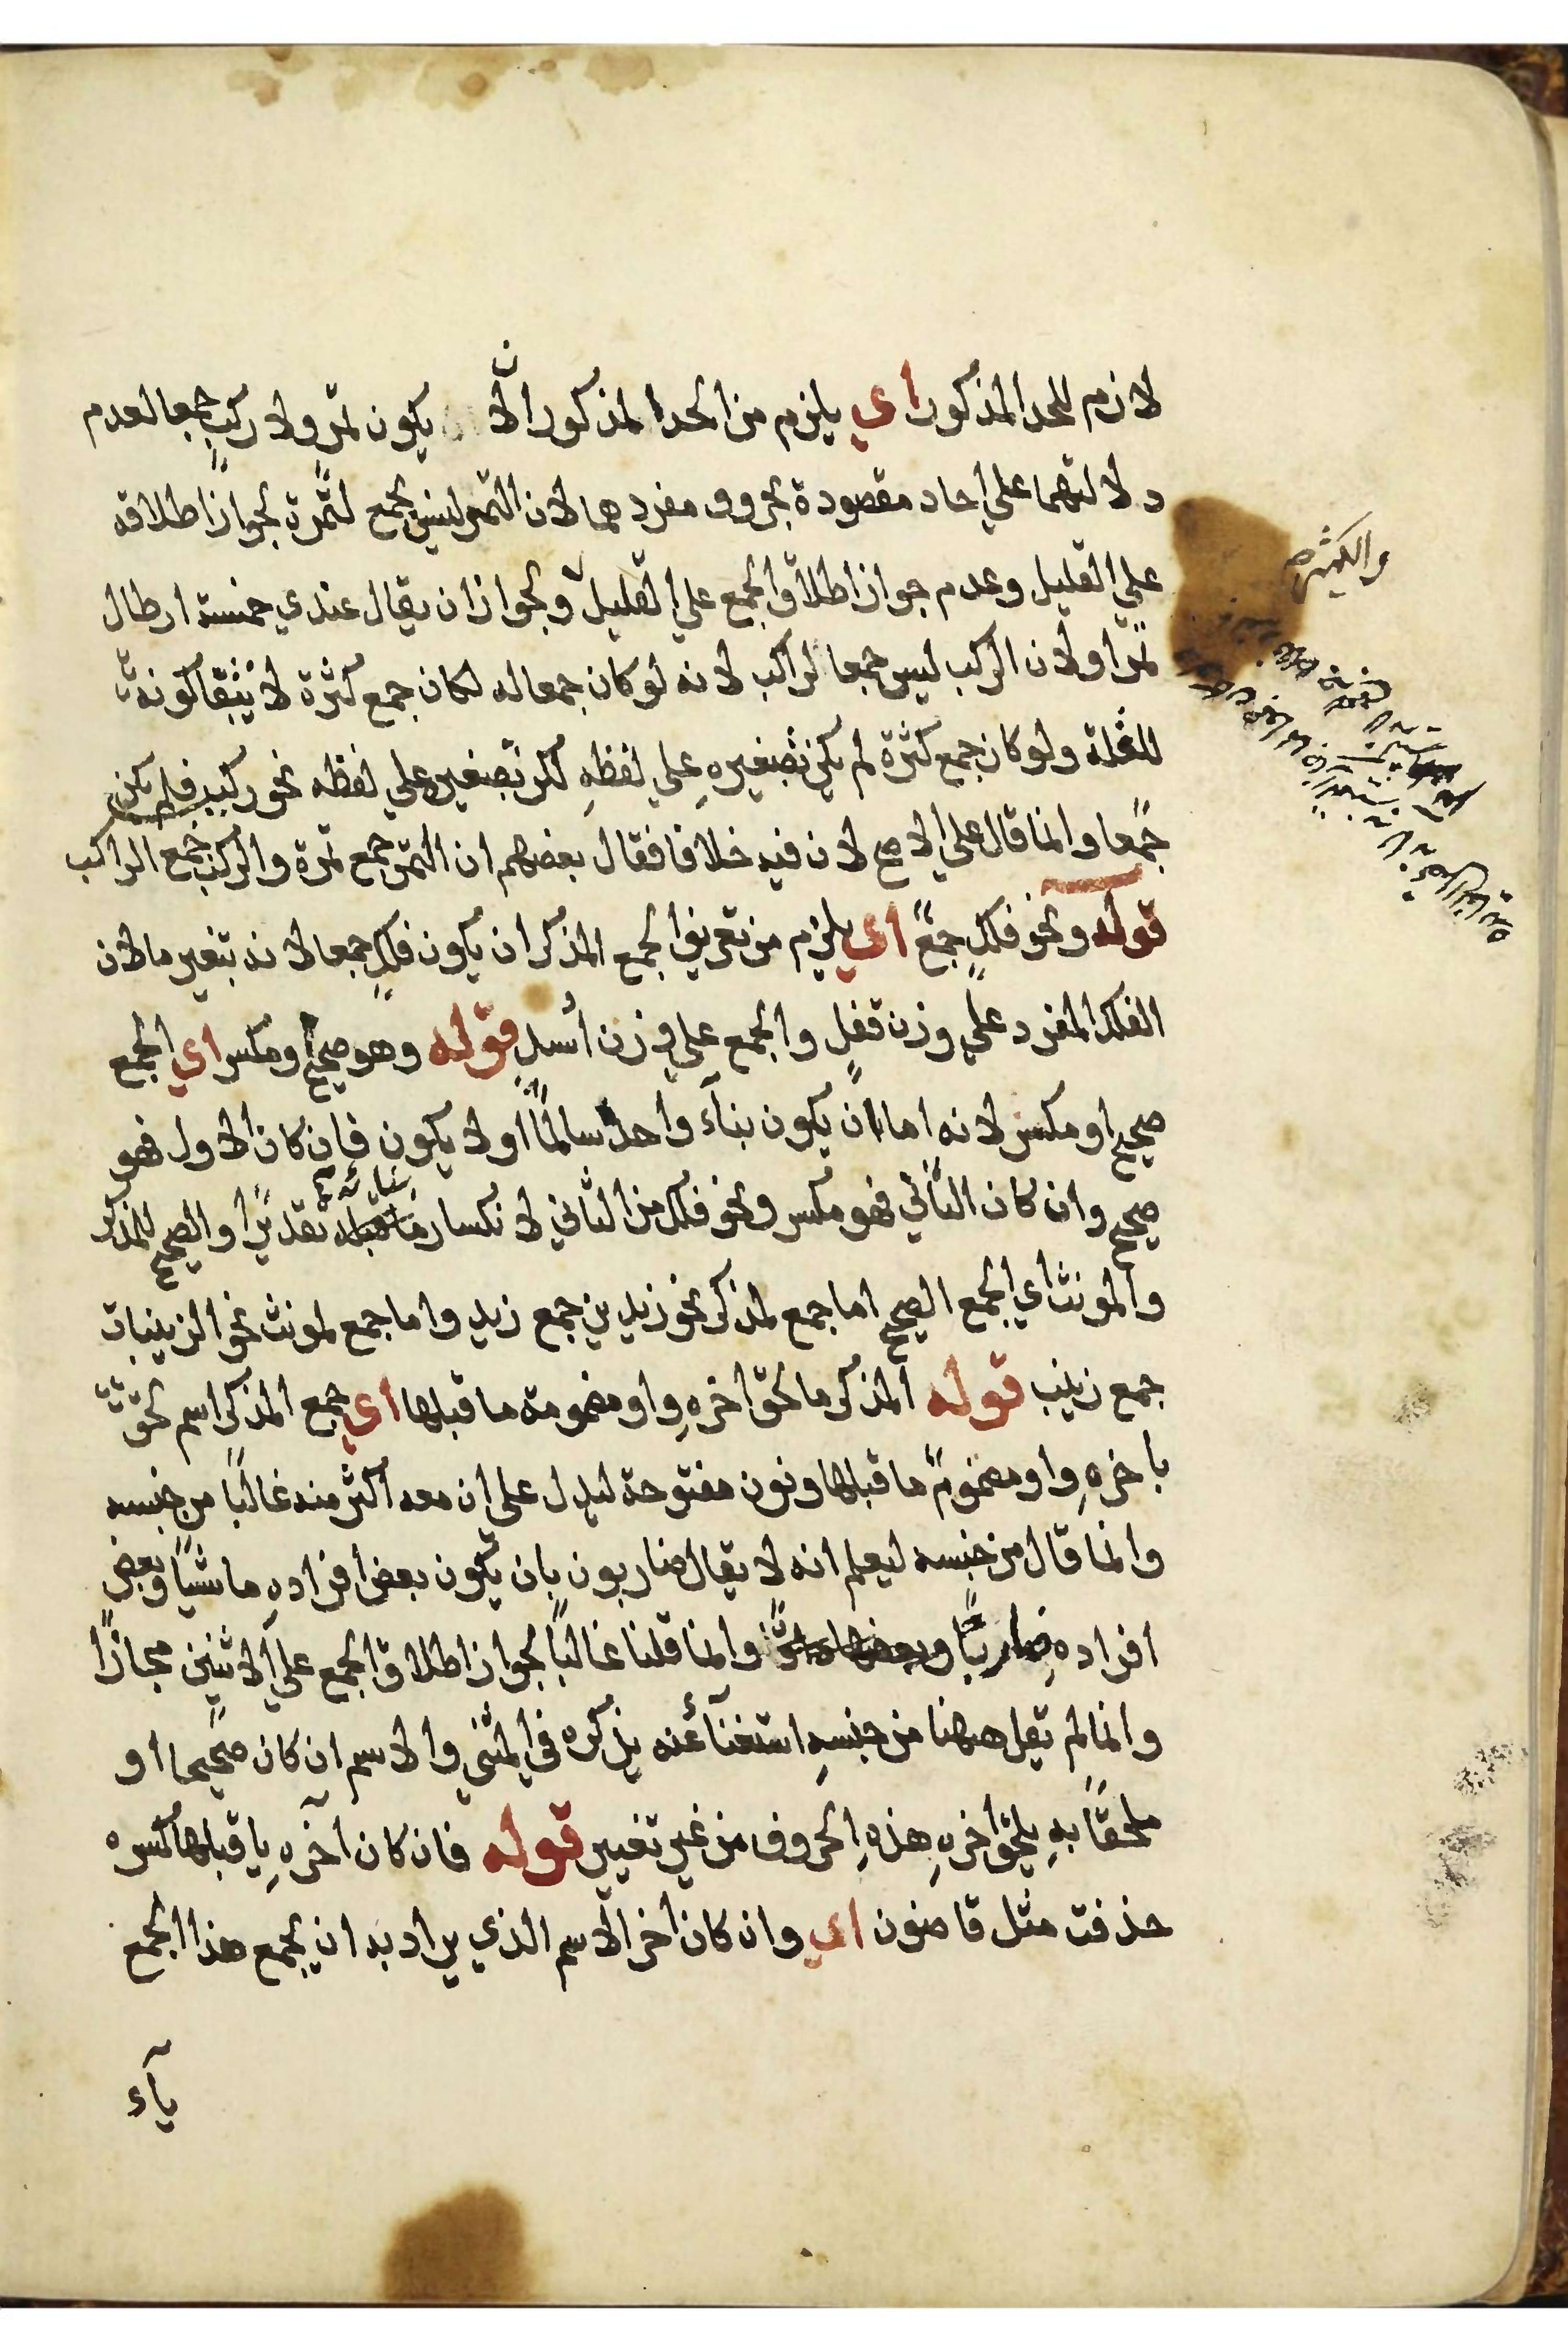 لازم للحد المذكور اي يلزم من الحد المذكور ان لا يكون تمر ولا ركب جمعا لعدم
دلالتهما علي احاد مقصودة بحروف مفردهما لان التمر ليس بجمع لتمرة لجواز اطلاقه
علي القليل وعدم جواز اطلاق الجمع علي القليل ولجواز ان يقال عندي خمسة ارطال
تمرا ولان الركب ليس جمعا لراكب لانه لو كان جمعا له لكان جمع كثرة لانتفا كونه
للقلة ولو كان جمع كثرة لم يكن تصغيره علي لفظه لكن تصغيره علي لفظه نحو ركيب فلم يكن
جمعا وانما قال علي الاصح لان فيه خلافا فقال بعضهم ان التمر جمع تمرة والركب جمع الراكب
قوله ونحو فلك جمع اي يلزم من تعريف الجمع المذكر ان يكون فلك جمعا لانه بتغير ما لان
الفلك المفرد علي وزن قفل والجمع علي وزن اسد قوله وهو صحيح ومكسر اي الجمع
صحيح او مكسر لانه اما ان يكون بناء واحده سالما او لا يكون فان كان الاول فهو
صحيح وان كان الثاني فهو مكسر ونحو فلك من الثاني لانكسار بنائه تقديرا والصحيح للمذكر
والمونث اي الجمع الصحيح اما جمع لمذكر نحو زيدين جمع زيد واما جمع لمونث نحو الزينبات
جمع زينب قوله المذكر ما لحق اخره واو مضمومة ما قبلها اي جمع المذكر اسم لحق
باخره واو مضموم ما قبلها ونون مفتوحة ليدل على ان معه اكثر منه غالبا من جنسه
وانما قال من جنسه ليعلم انه لا يقال ضاربون بان يكون بعض افراده ماشيا وبعض
افراده ضاربا وانما قلنا غالبا لجواز اطلاق الجمع علي الاثنين مجازا
وانما لم تقل ههنا من جنسه استغناء عنه بذكره في المثني والاسم ان كان صحيحا او
ملحقا به يلحق اخره هذه الحروف من غير تغيير قوله فان كان آخره يا قبلها كسره
حذفت مثل قاضون اي وان كان اخر الاسم الذي يراد به ان يجمع هذا الجمع
ياء
والكثيره